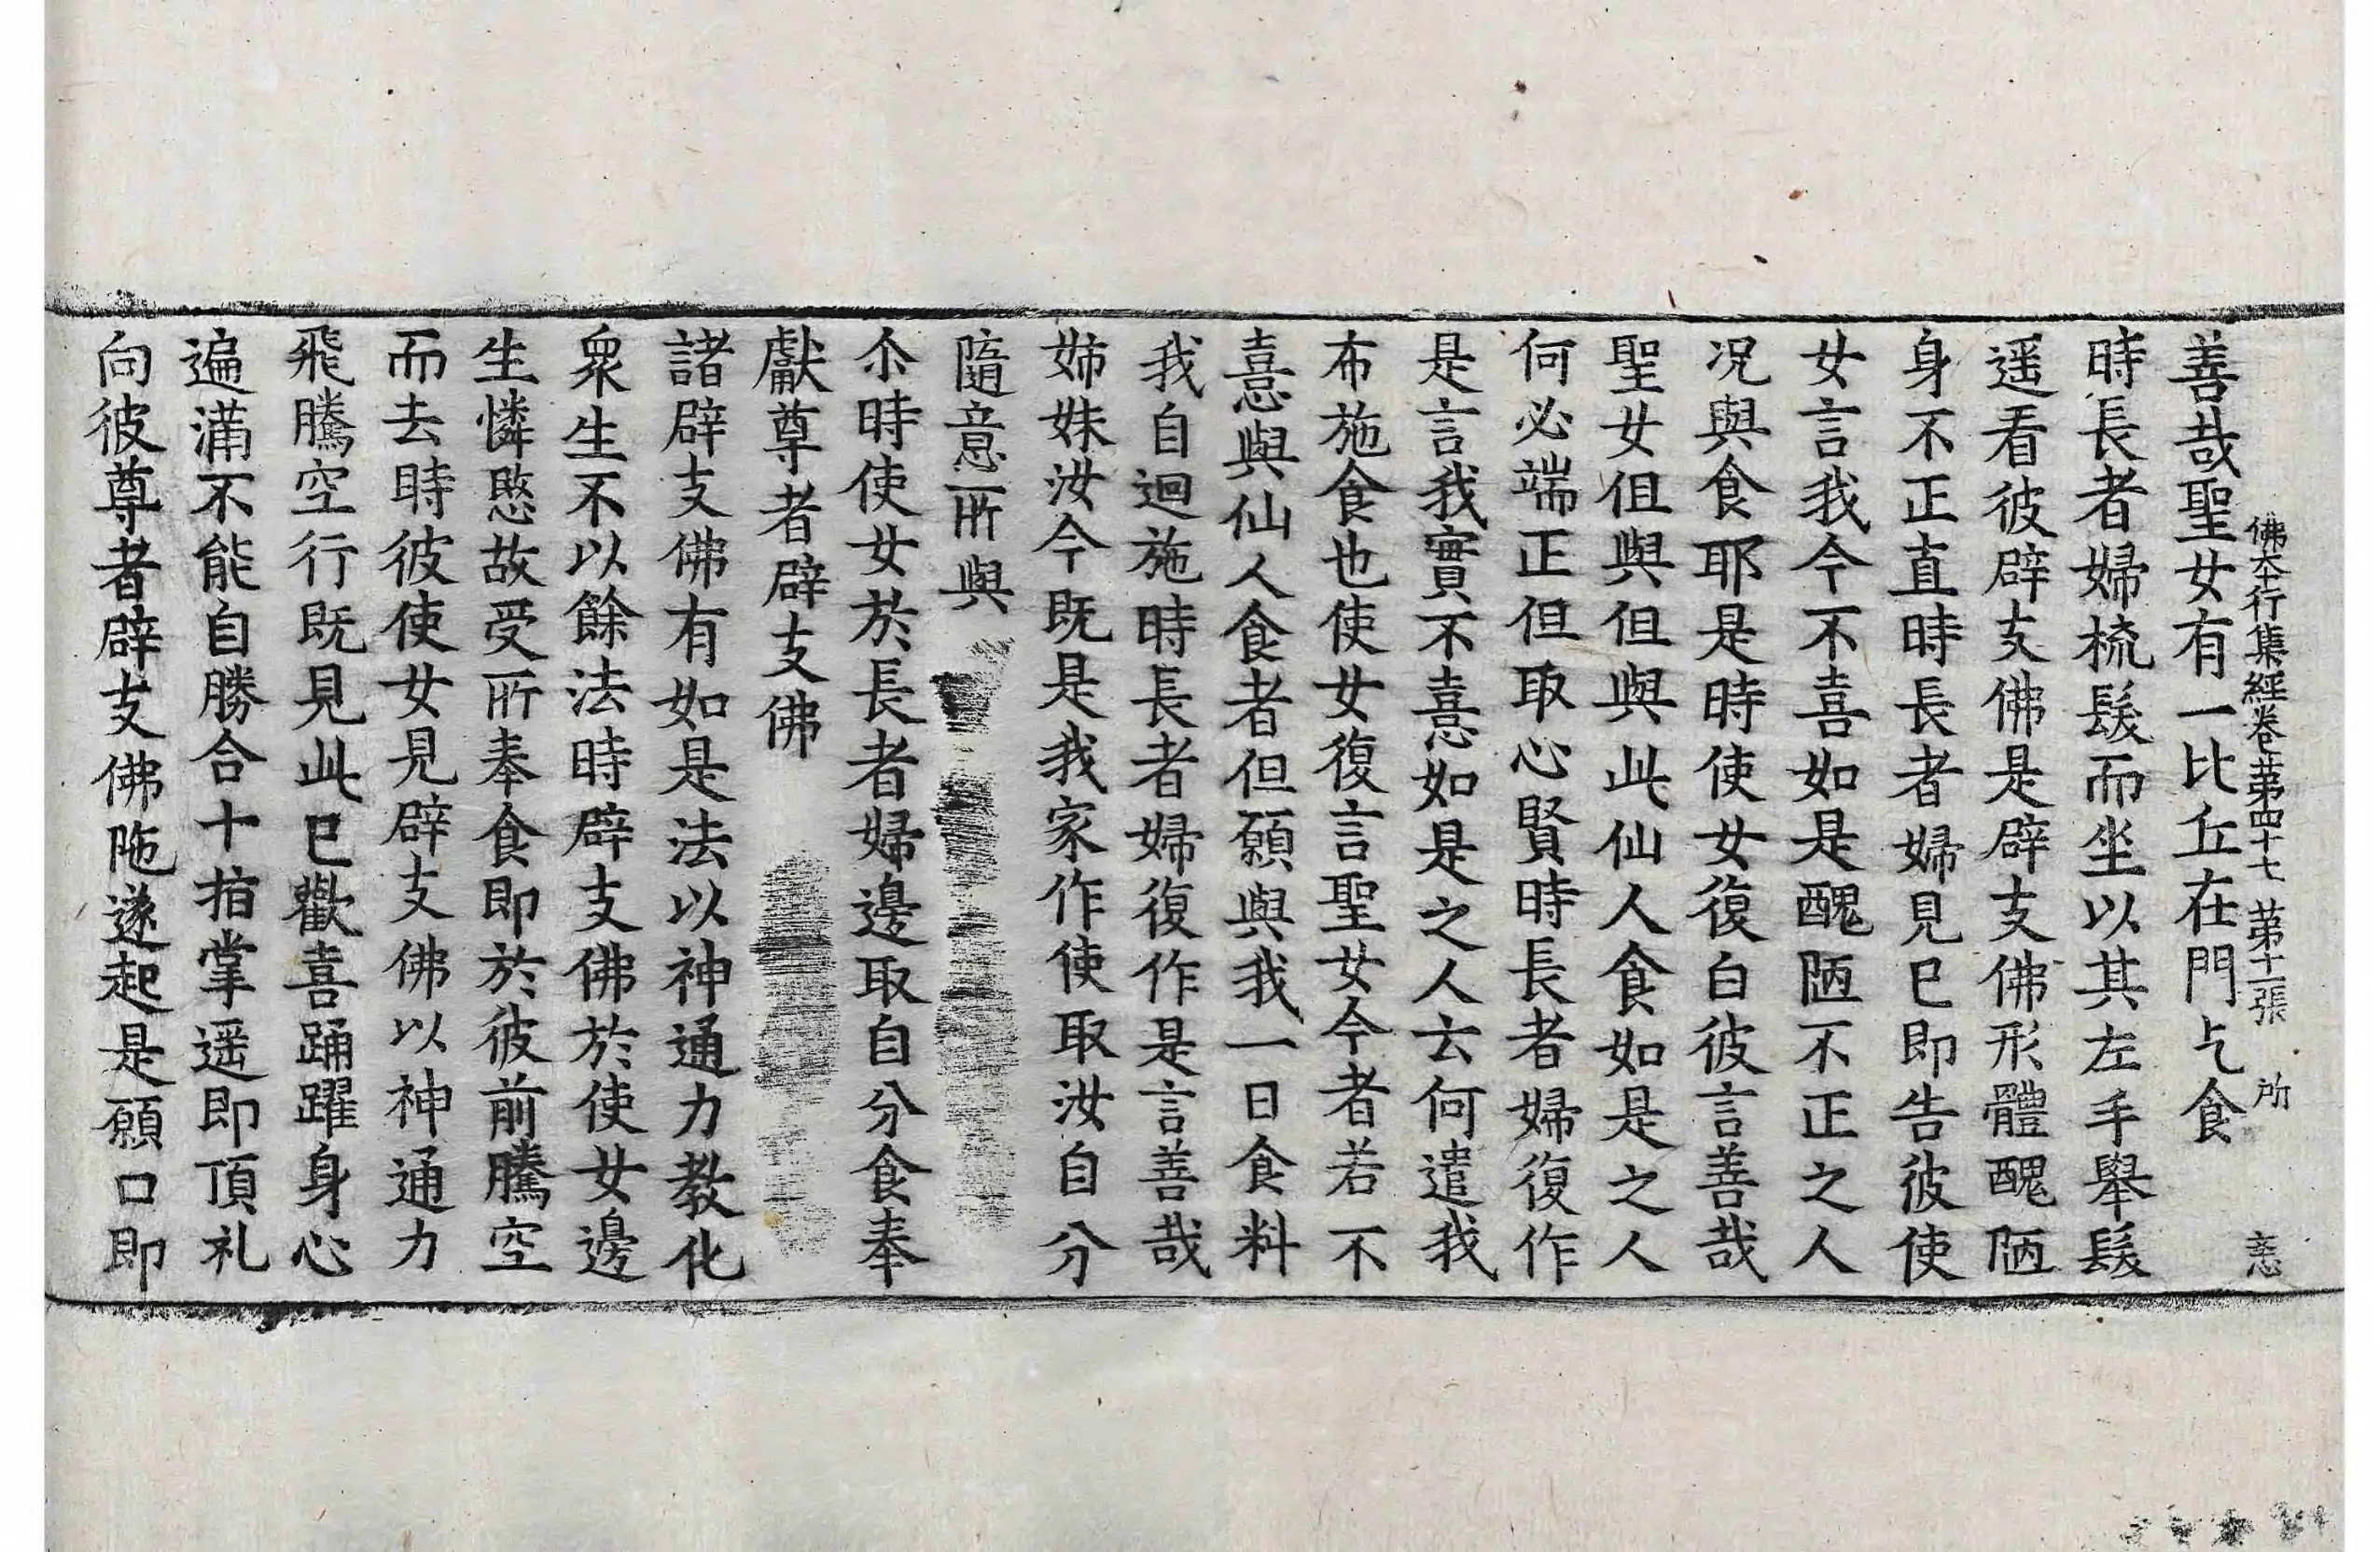 佛夲行集經卷苐四十七 苐十一張 所
善哉聖女有一比丘在門乞食
時長者婦梳髮而坐以其左手舉髮
遥看彼辟支佛是辟支佛形體醜陋
身不正直時長者婦見已即告彼使
女言我今不喜如是醜陋不正之人
况與食耶是時使女復白彼言善哉
聖女但與但與此仙人食如是之人
何必端正但取心賢時長者婦復作
是言我實不憙如是之人云何遣我
布施食也使女復言聖女今者若不
憙與仙人食者但願與我一日食料
我自迴施時長者婦復作是言善哉
姉妹汝今既是我家作使取汝自分
隨意所與
尒時使女於長者婦邊取自分食奉
獻尊者辟支佛
諸辟支佛有如是法以神通力教化
衆生不以餘法時辟支佛於使女邊
生憐愍故受所奉食即於彼前騰空
而去時彼使女見辟支佛以神通力
飛騰空行既見此已歡喜踊躍身心
遍滿不能自勝合十指掌遥即頂礼
向彼尊者辟支佛陁遂起是願口即